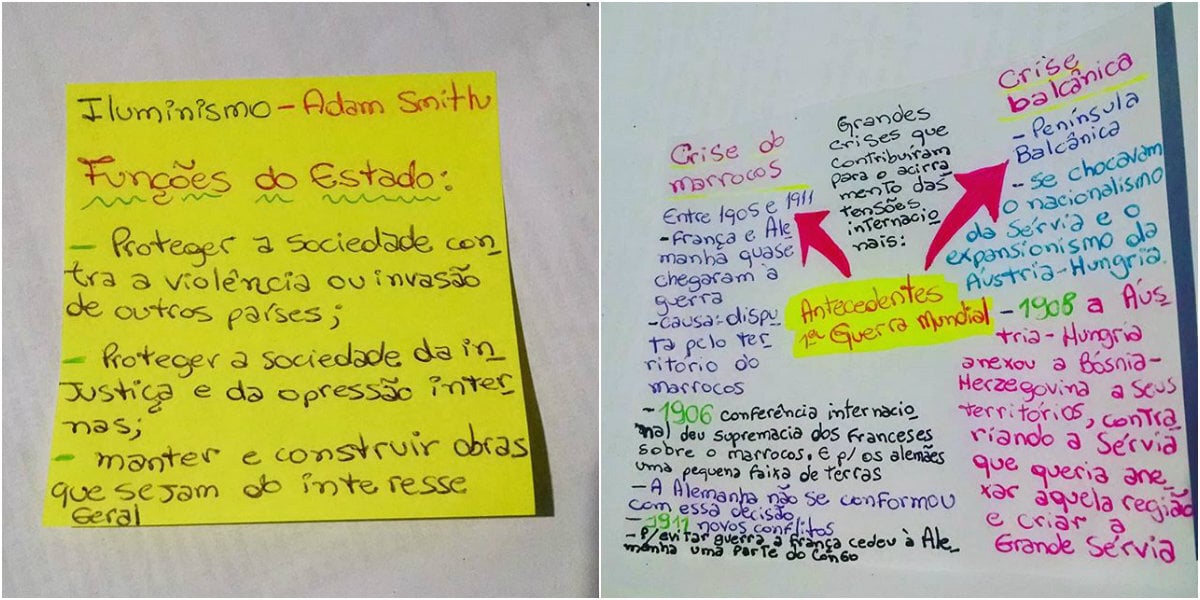 Iluminismo - Adam Smith
Funções do Estado:
- Proteger a sociedade con
tra a violência ou invasão
de outros países;
- Proteger a sociedade da in
justiça e da opressão inter
nas;
- manter e construir obras
que sejam do interesse
Geral
Grandes
crises que
contribuíram
para o acirra
mento das
tensões
internacio
nais:
Antecedentes
1ª Guerra Mundial
Crise do
marrocos
Entre 1905 e 1911
- França e Ale
manha quase
chegaram à
guerra
- causa: dispu
ta pelo ter
ritório do
marrocos
- 1906 conferência internacio
nal deu supremacia dos Franceses
sobre o marrocos. E p/ os alemães
uma pequena faixa de terras
- A Alemanha não se conformou
com essa decisão
- 1911 novos conflitos
- p/ evitar guerra a França cedeu à Ale
manha uma parte do Congo
Crise
balcânica
- Península
Balcânica
- se chocavam
o nacionalismo
da Sérvia e o
expansionismo da
Áustria-Hungria.
- 1908 a Áus
tria-Hungria
anexou a Bósnia-
Herzegovina a seus
territórios, contra
riando a Sérvia
que queria ane
xar aquela região
e criar a
Grande Sérvia